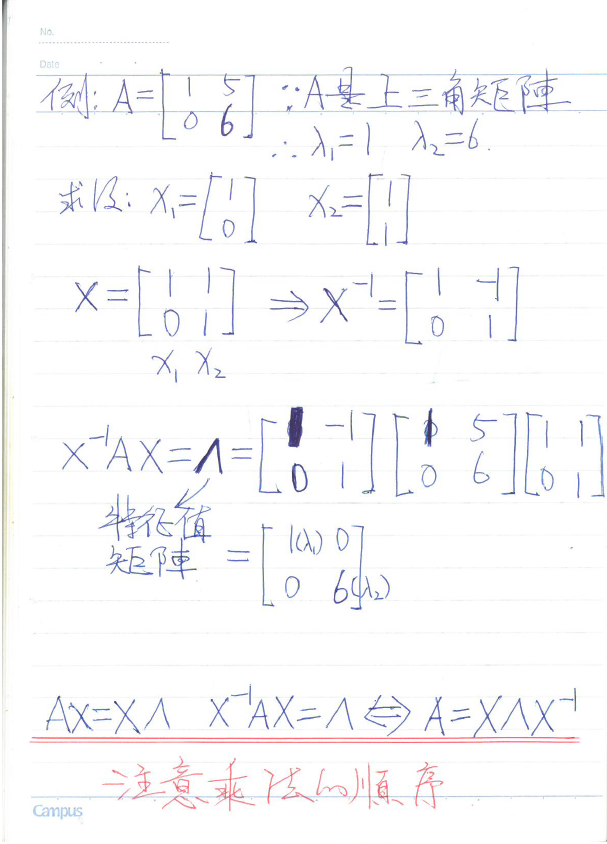 No.
Date
例: A=[1 5; 0 6] ∵A是上三角矩陣
∴ λ₁=1 λ₂=6.
求得: X₁=[1; 0] X₂=[1; 1]
X=[1 1; 0 1] ⇒ X⁻¹=[1 -1; 0 1]
X₁ X₂
X⁻¹AX=Λ=[1 -1; 0 1][1 5; 0 6][1 1; 0 1]
特征值
矩陣 =[1(λ₁) 0; 0 6(λ₂)]
AX=XΛ X⁻¹AX=Λ⇔A=XΛX⁻¹
注意乘法的順序
Campus